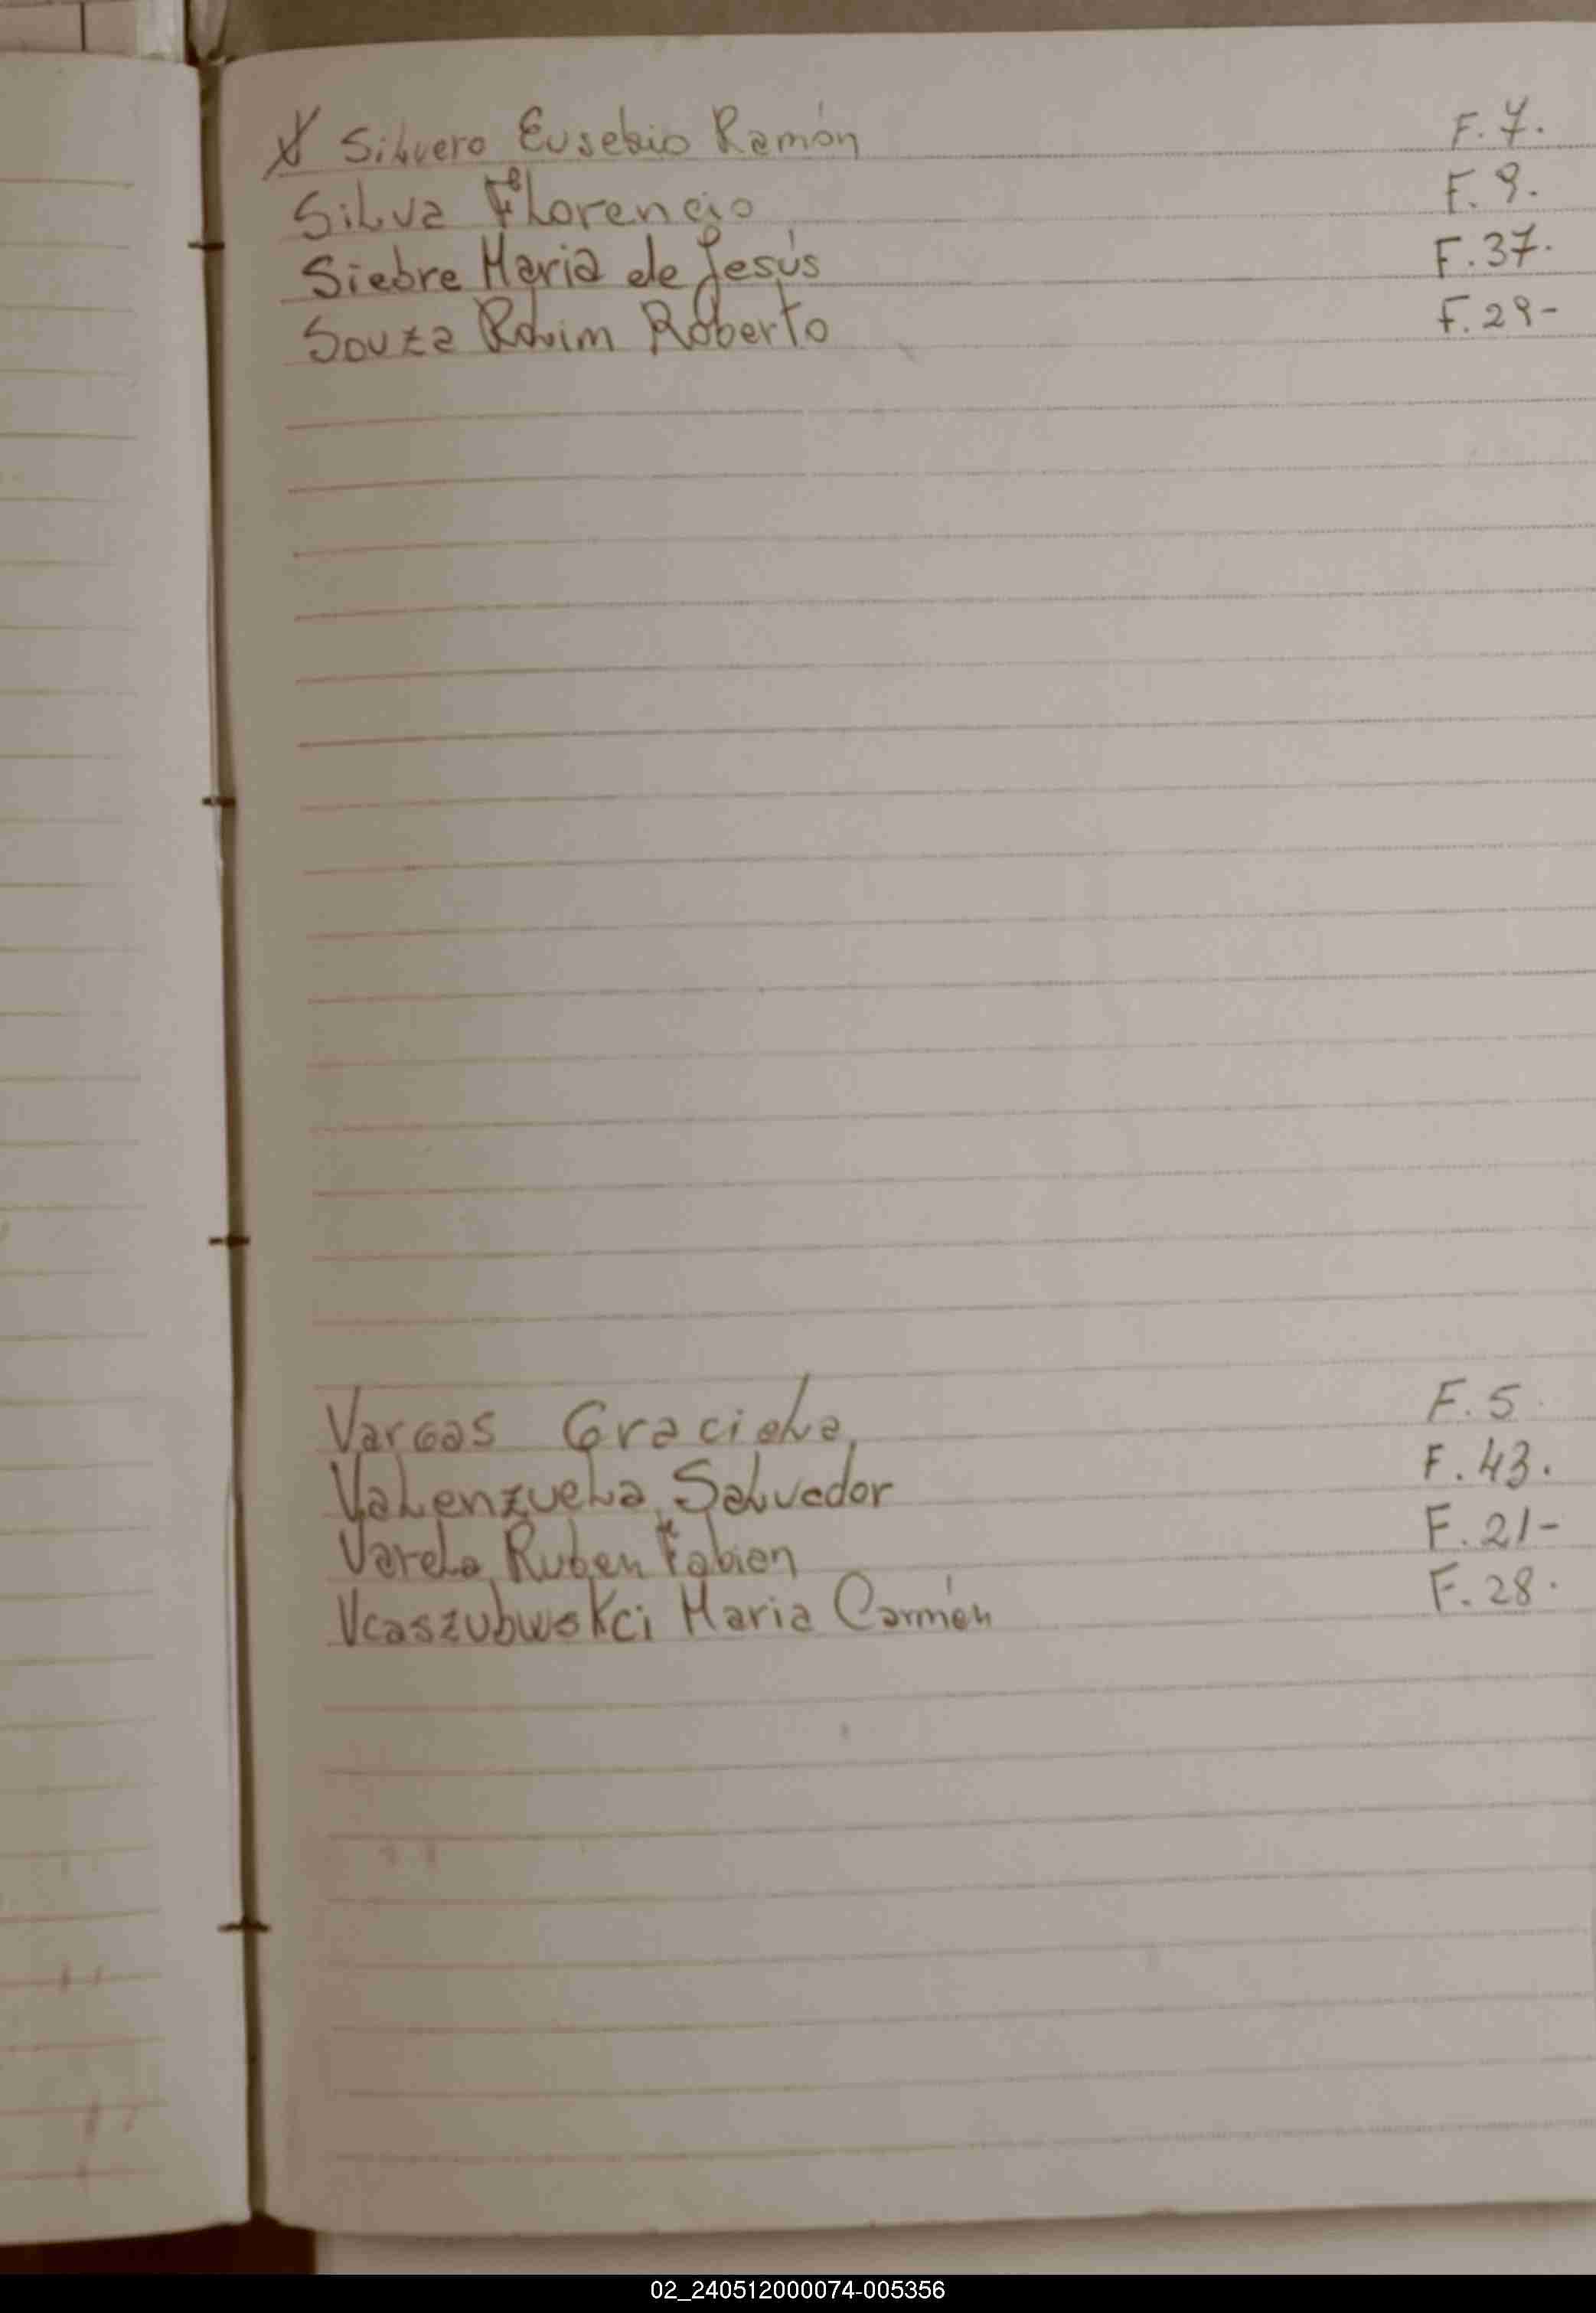 X Silvero Eusebio Ramón F. 7.
Silva Florencio F. 9.
Siebre Maria de Jesús F. 37.
Souza Roberto F. 29-
Vargas Graciela F. 5.
Valenzuela Salvador F. 43.
Varela Ruben Fabian F. 21-
Vcaszubwskci Maria Carmén F. 28.
02_240512000074-005356